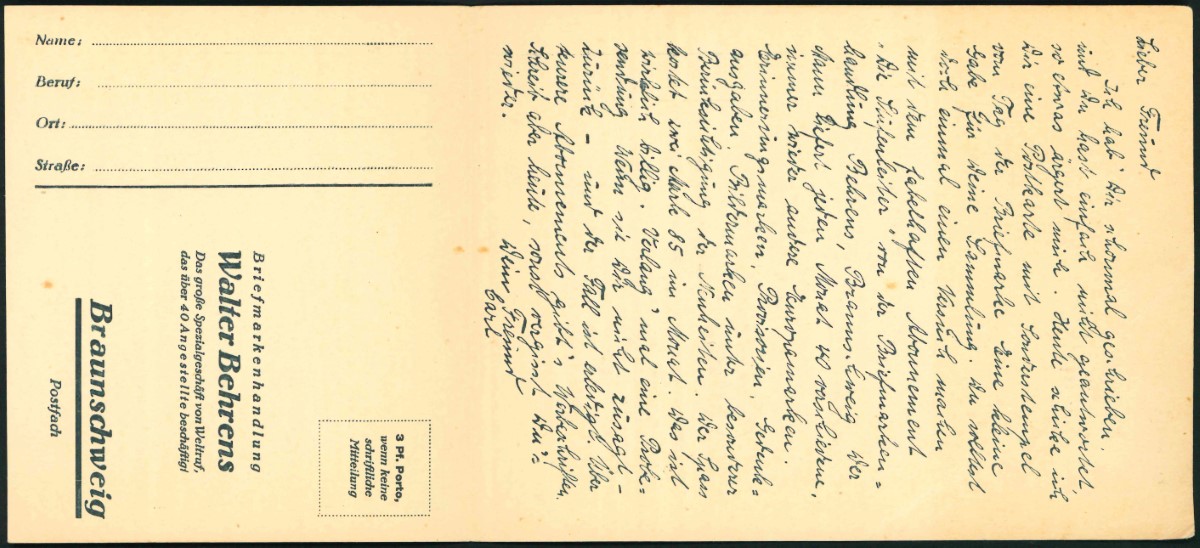 Name:
Beruf:
Ort:
Straße:
Briefmarkenhandlung
Walter Behrens
Das große Spezialgeschäft von Weltruf,
das über 40 Angestellte beschäftigt
Braunschweig
Postfach
3 Pf. Porto,
wenn keine
schriftliche
Mitteilung
Lieber Freund
Ich hab' Dir schonmal geschrieben.
und Du hast einfach nicht geantwortet,
so etwas ärgert mich. Heute schicke ich
Dir eine Postkarte mit Sonderstempel
vom Tag der Briefmarke eine kleine
Gabe für Deine Sammlung. Du solltest
doch einmal einen Versuch machen
mit dem fabelhaften Abonnement
"Die Stufenleiter" von der Briefmarken=
handlung Behrens, Braunschweig. Der
Mann liefert jeden Monat 40 verschiedene,
immer wieder andere Europamarken.
Erinnerungsmarken, Provisorien, Gedenk=
ausgaben, Bildermarken unter besonderer
Berücksichtigung der Neuheiten. Der Spass
kostet nur Mark 85 im Monat. Das ist
wirklich billig. Verlang' mal eine Probe-
sendung wenn sie Dir nicht zusagt -
zurück - und der Fall ist erledigt. Über
teurere Abonnements gibt's Vorschriften.
Schreib aber heute, sonst vergisst Du's
wieder.
Dein Freund
Carl